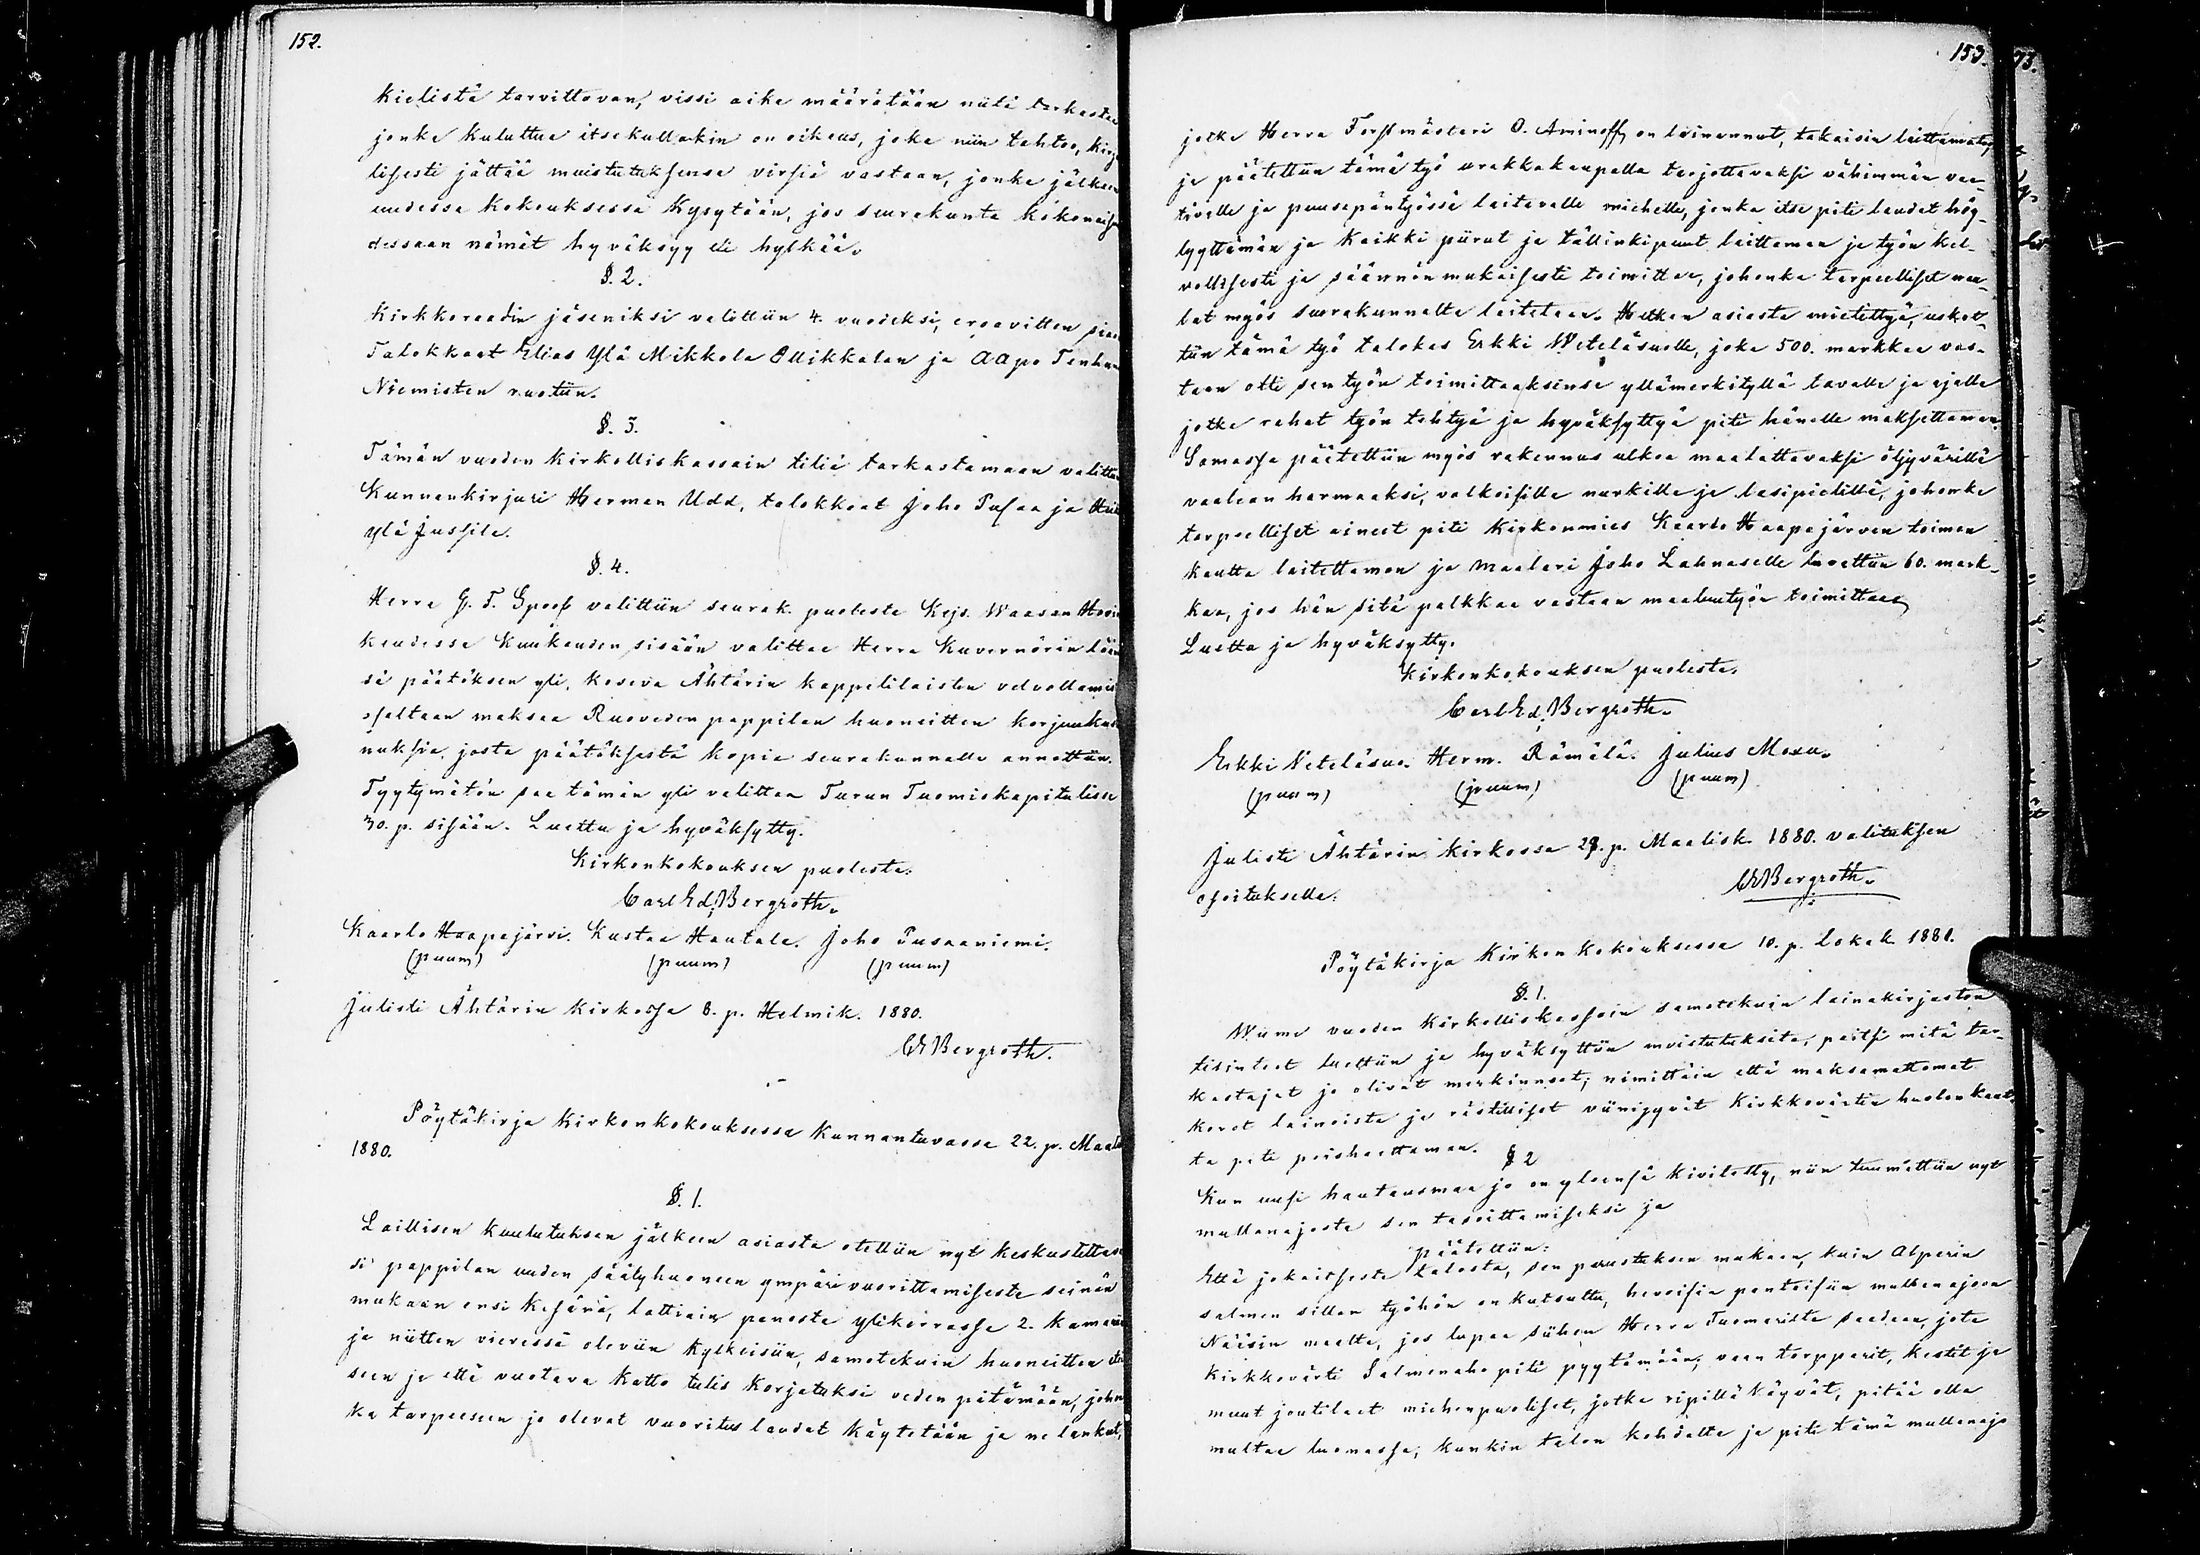 152.
kielistä tarvittavan, vissi aika määrätään niitä tarkasta
jonka kuluttua itsekullakin on oikeus, joka niin tahtoo, kirja
lisesti jättää muistutuksensa virsiä vastaan, jonka jälkeen
uudessa kokouksessa kysytään, jos seurakunta kokonaisu
dessaan nämät hyväksyy eli hylkää.
§. 2.
Kirkkoraadin jäseniksi valittiin 4. vuodeksi, eroavitten siaan
Talokkaat Elias Ylä Mikkola Ollikkalan ja Aapo Tenhun
Niemisten ruotiin.
§. 3.
Tämän vuoden kirkolliskassain tiliä tarkastamaan valittiin
Kunnankirjuri Herman Udd, talokkaat Joho Pusaa ja
Ylä Jussila.
§. 4.
Herra G. T. Spoof valittiin seurak. puolesta Kejs. Waasan Hovioi
keudessa kuukauden sisään valittaa Herra Kuvernörin lään
sä päätöksen yli, koseva Ähtärin kappelilaisten velvollamis
osaltaan maksaa Ruoveden pappilan huoneitten korjuukus
nuksia, josta päätöksestä kopia seurakunnalle annettiin.
Tyytymätön saa tämän yli valittaa Turun Tuomiokapitulissa
30. p. sisään. Luettu ja hyväksytty.
Kirkonkokouksen puolesta.
Carl Ed. Bergroth.
Kaarlo Haapajärvi. Kustaa Hautala. Joho Pusaaniemi.
(puum) (puum) (puum)
Julisti Ähtärin kirkossa 8. p. Helmik. 1880.
CEBergroth.
Pöytäkirja Kirkonkokouksessa Kunnantuvassa 22. p. Maalis
1880.
§. 1.
Laillisen kuulutuksen jälkeen asiasta otettiin nyt keskustelta
si pappilan uuden säätyhuoneen ympäri vuorittamisesta seinän
mukaan ensi kesänä, lattiain panosta ylikerrassa 2. kamarin
ja niitten vieressä oleviin kylkeisiin, samatekuin huoneitten
seen ja että vuotava katto tulis korjatuksi veden pitämään, john
ka tarpeeseen jo olevat vuoritus laudat käytetään ja ne lankut,
153.
jotka Herra Forstmästari O. Aminoff on lainannut, takaisin laittamatta,
ja päätettiin tämä työ urakkakaupalla tarjottavaksi vähimmän vaa-
tivalle ja puusepäntyössä taitavalle miehelle, jonka itse piti laudat höy-
lyyttämän ja kaikki piirut ja tällinkipuut laittaman ja työn kel-
vollisesti ja säännön mukaisesti toimittaa, johonka tarpeelliset nau-
lat myös seurakunnalta laitetaan. Hetken asiasta mietittyä, uskot-
tiin tämä työ talokas Erkki Weteläsuolle, joka 500. markkaa vas-
taan otti sen työn toimittaaksensa yllämerkityllä tavalla ja ajalla
jotka rahat työn tehtyä ja hyväksyttyä piti hänelle maksettaman.
Samassa päätettiin myös rakennus ulkoa maalattavaksi öljyvärillä
vaalean harmaaksi, valkosilla nurkilla ja lasipielillä, johonka
tarpeelliset aineet piti Kirkonmies Kaarlo Haapajärven toimen
kautta laitettaman ja maalari Joho Lahnaselle luvattiin 60. mark-
kaa, jos hän sitä palkkaa vastaan maaluutyön toimittaa
Luettu ja hyväksytty.
Kirkonkokouksen puolesta.
Carl Ed. Bergroth.
Erkki Veteläsuo. Herm. Rämälä. Julius Mosu.
(puum) (puum) (puum)
Julisti Ähtärin kirkossa 28. p. Maalisk. 1880. valituksen
osoituksella.
CEBergroth.
Pöytäkirja Kirkonkokouksessa 10. p. Lokak. 1880.
§. 1.
Wiime vuoden Kirkolliskassain samatekuin lainakirjaston
tilinteot luettiin ja hyväksyttiin muistutuksita, paitsi mitä tar-
kastajat jo olivat merkinneet, nimittäin että maksamattomat
korot lainoista ja rästilliset viinijyvät Kirkkovärtin huolenkaut-
ta piti perishoettaman.
§ 2
Kun uusi hautausmaa jo on yleensä kivilotty, niin tuumattiin nyt
mullanajosta sen tasoittamiseksi ja
päätettiin:
Että jokaitsesta talosta, sen perustuksen mukaan, kuin Alperin
salmen sillan työhön on kutsuttu, hevoisia pantaisiin mullanajoon
Näisin maalta, jos lupaa siihen Herra Tuomarilta saadaan, jota
kirkkovärti Salmenaho piti pyytämään, vaan torpparit, kestit ja
muut joutilaat miehenpuoliset, jotka ripillä käyvät, pitää olla
multaa luomassa, kunkin talon kohdalta ja piti tämä mullanajo